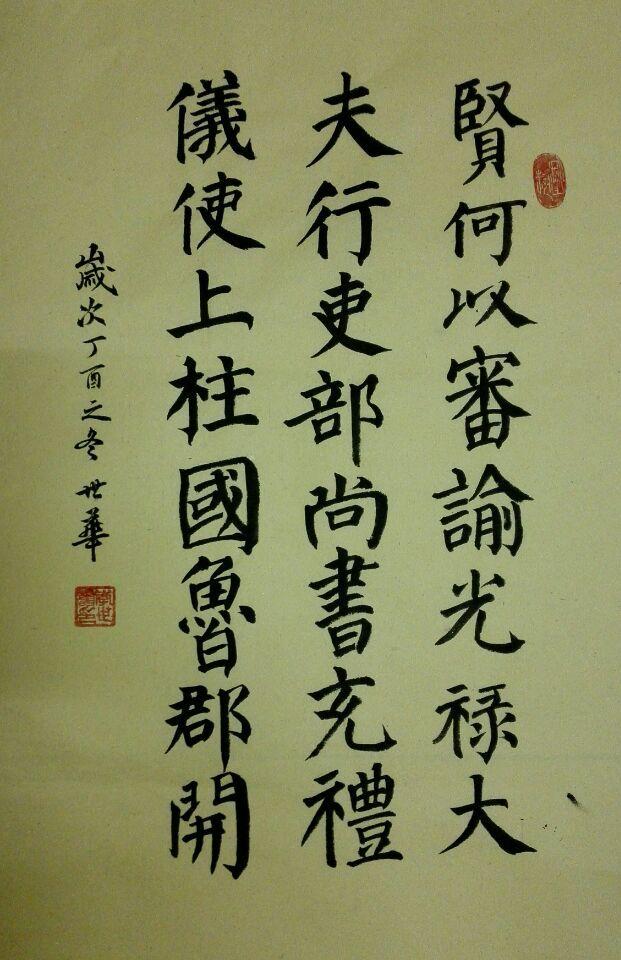 賢何以審諭光禄大
夫行吏部尚書充禮
儀使上柱國魯郡開
歲次丁酉之冬世華